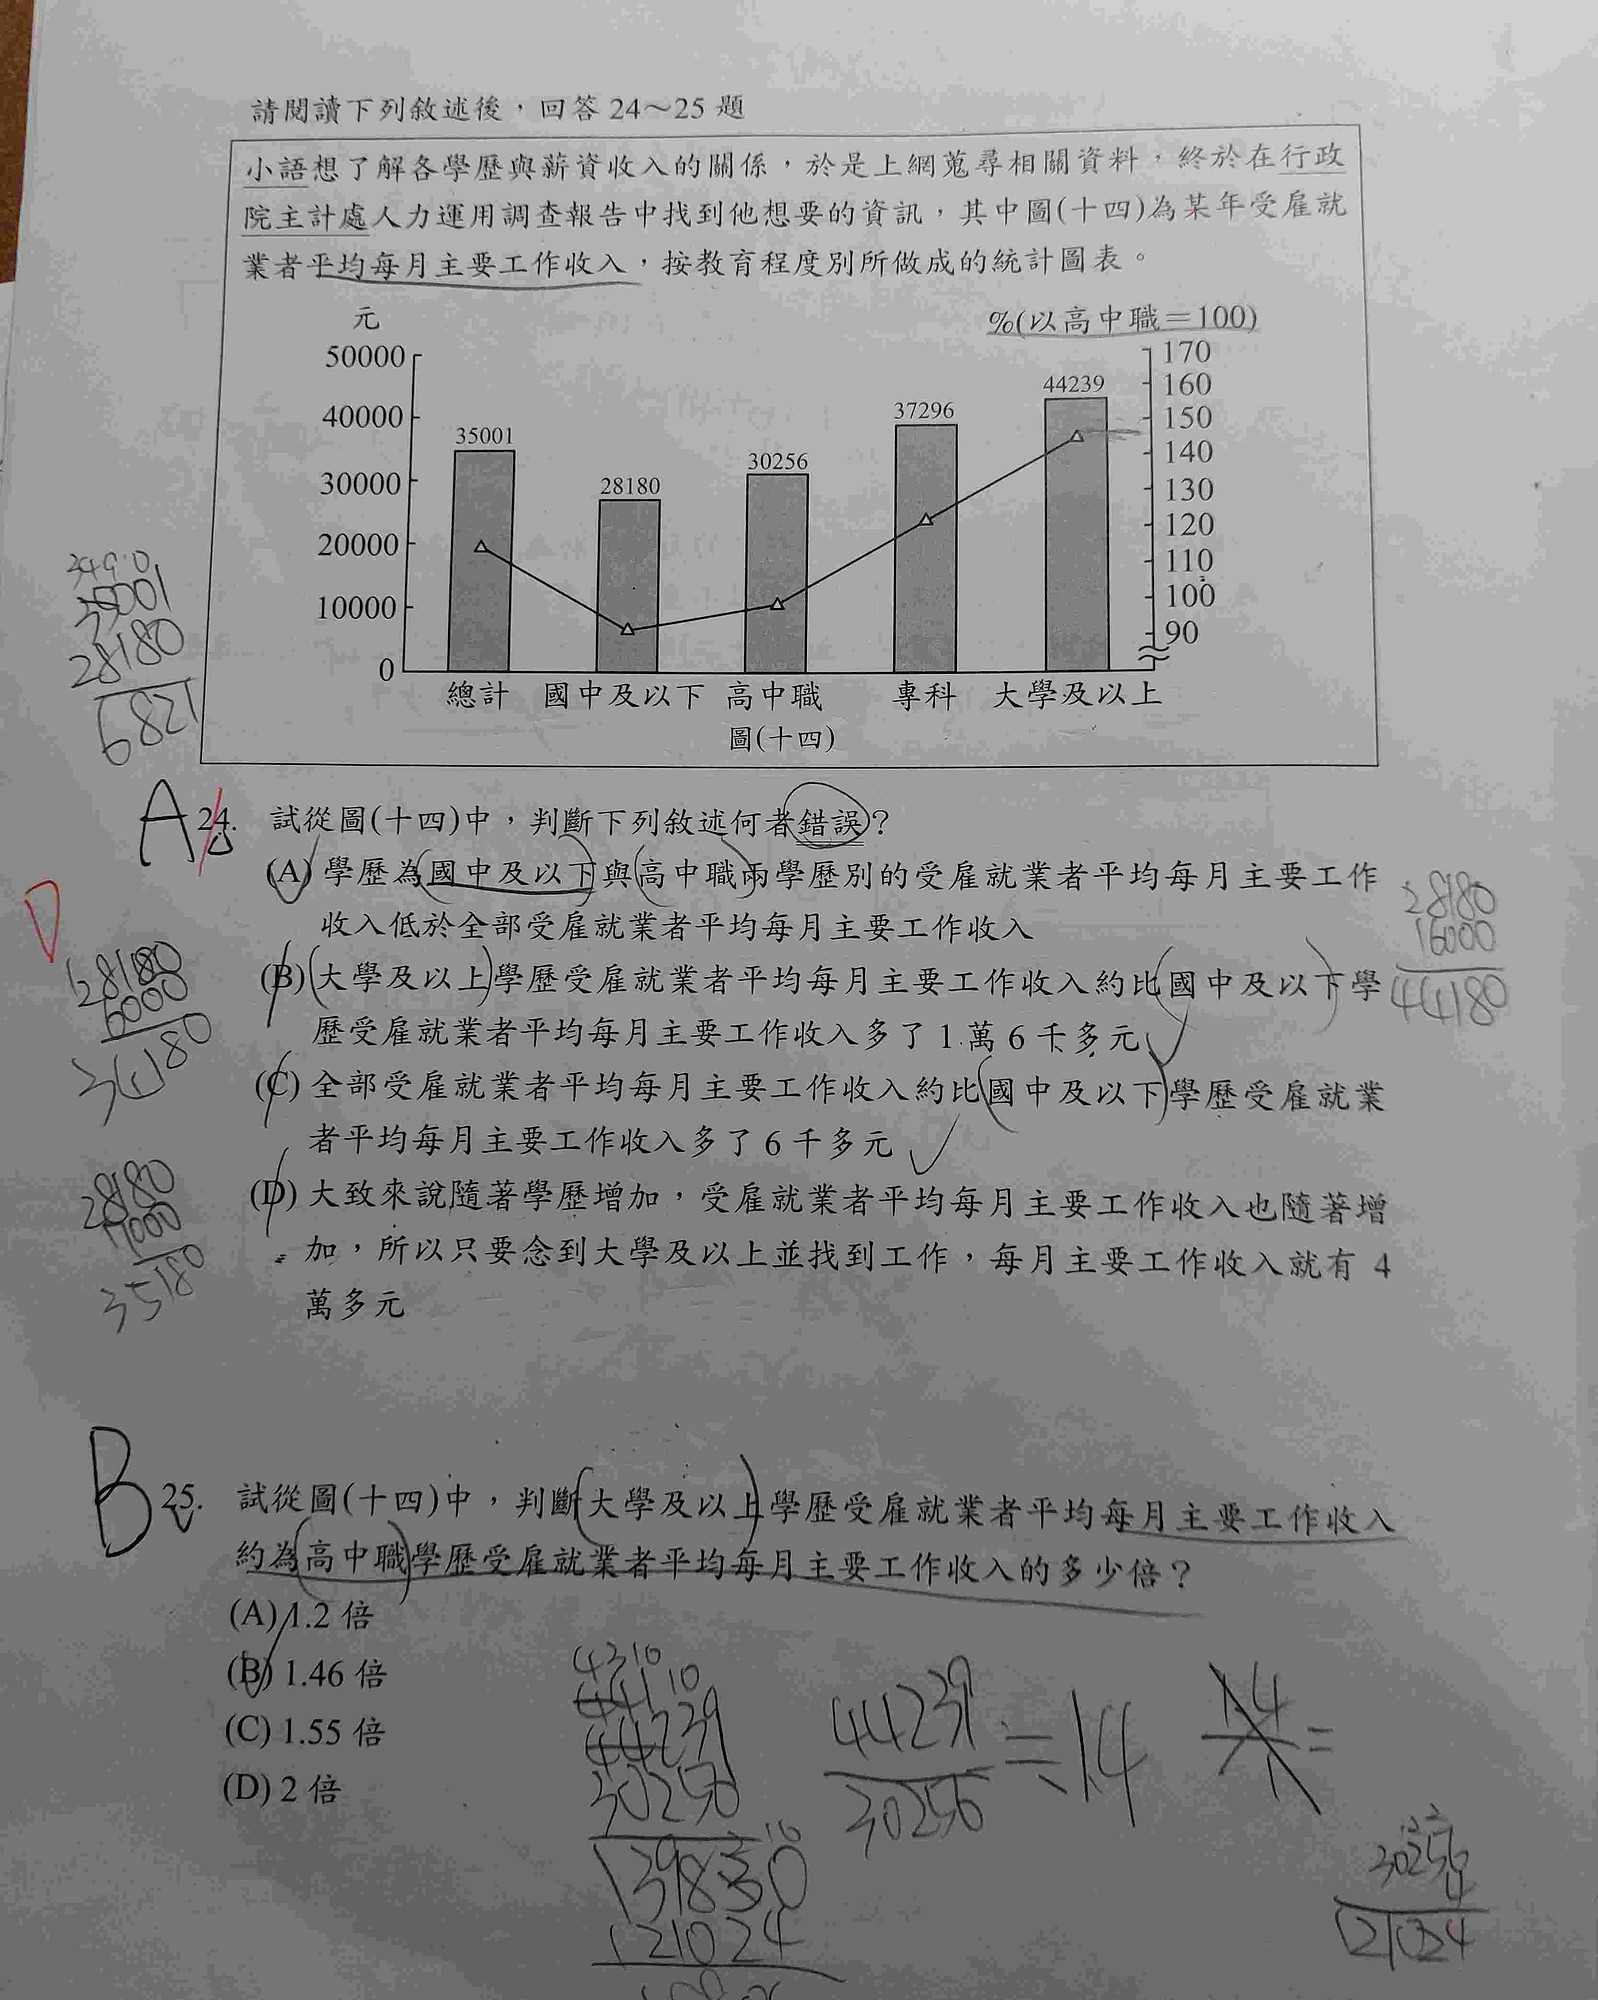 請閱讀下列敘述後，回答 24～25 題
小語想了解各學歷與薪資收入的關係，於是上網蒐尋相關資料，終於在行政
院主計處人力運用調查報告中找到他想要的資訊，其中圖(十四)為某年受雇就
業者平均每月主要工作收入，按教育程度別所做成的統計圖表。
元
%(以高中職＝100)
50000
40000
30000
20000
10000
0
35001
28180
30256
37296
44239
170
160
150
140
130
120
110
100
90
總計 國中及以下 高中職 專科 大學及以上
圖(十四)
35001
28180
6821
A
24. 試從圖(十四)中，判斷下列敘述何者錯誤？
(A) 學歷為國中及以下與高中職兩學歷別的受雇就業者平均每月主要工作
收入低於全部受雇就業者平均每月主要工作收入
D
28180
16000
44180
(B) 大學及以上學歷受雇就業者平均每月主要工作收入約比國中及以下學
歷受雇就業者平均每月主要工作收入多了 1 萬 6 千多元
28180
6000
34180
(C) 全部受雇就業者平均每月主要工作收入約比國中及以下學歷受雇就業
者平均每月主要工作收入多了 6 千多元
28180
7000
35180
(D) 大致來說隨著學歷增加，受雇就業者平均每月主要工作收入也隨著增
加，所以只要念到大學及以上並找到工作，每月主要工作收入就有 4
萬多元
B
25. 試從圖(十四)中，判斷大學及以上學歷受雇就業者平均每月主要工作收入
約為高中職學歷受雇就業者平均每月主要工作收入的多少倍？
(A) 1.2 倍
(B) 1.46 倍
(C) 1.55 倍
(D) 2 倍
44239
30256
139830
121024
44239
30256
≒1.4
30256
121024